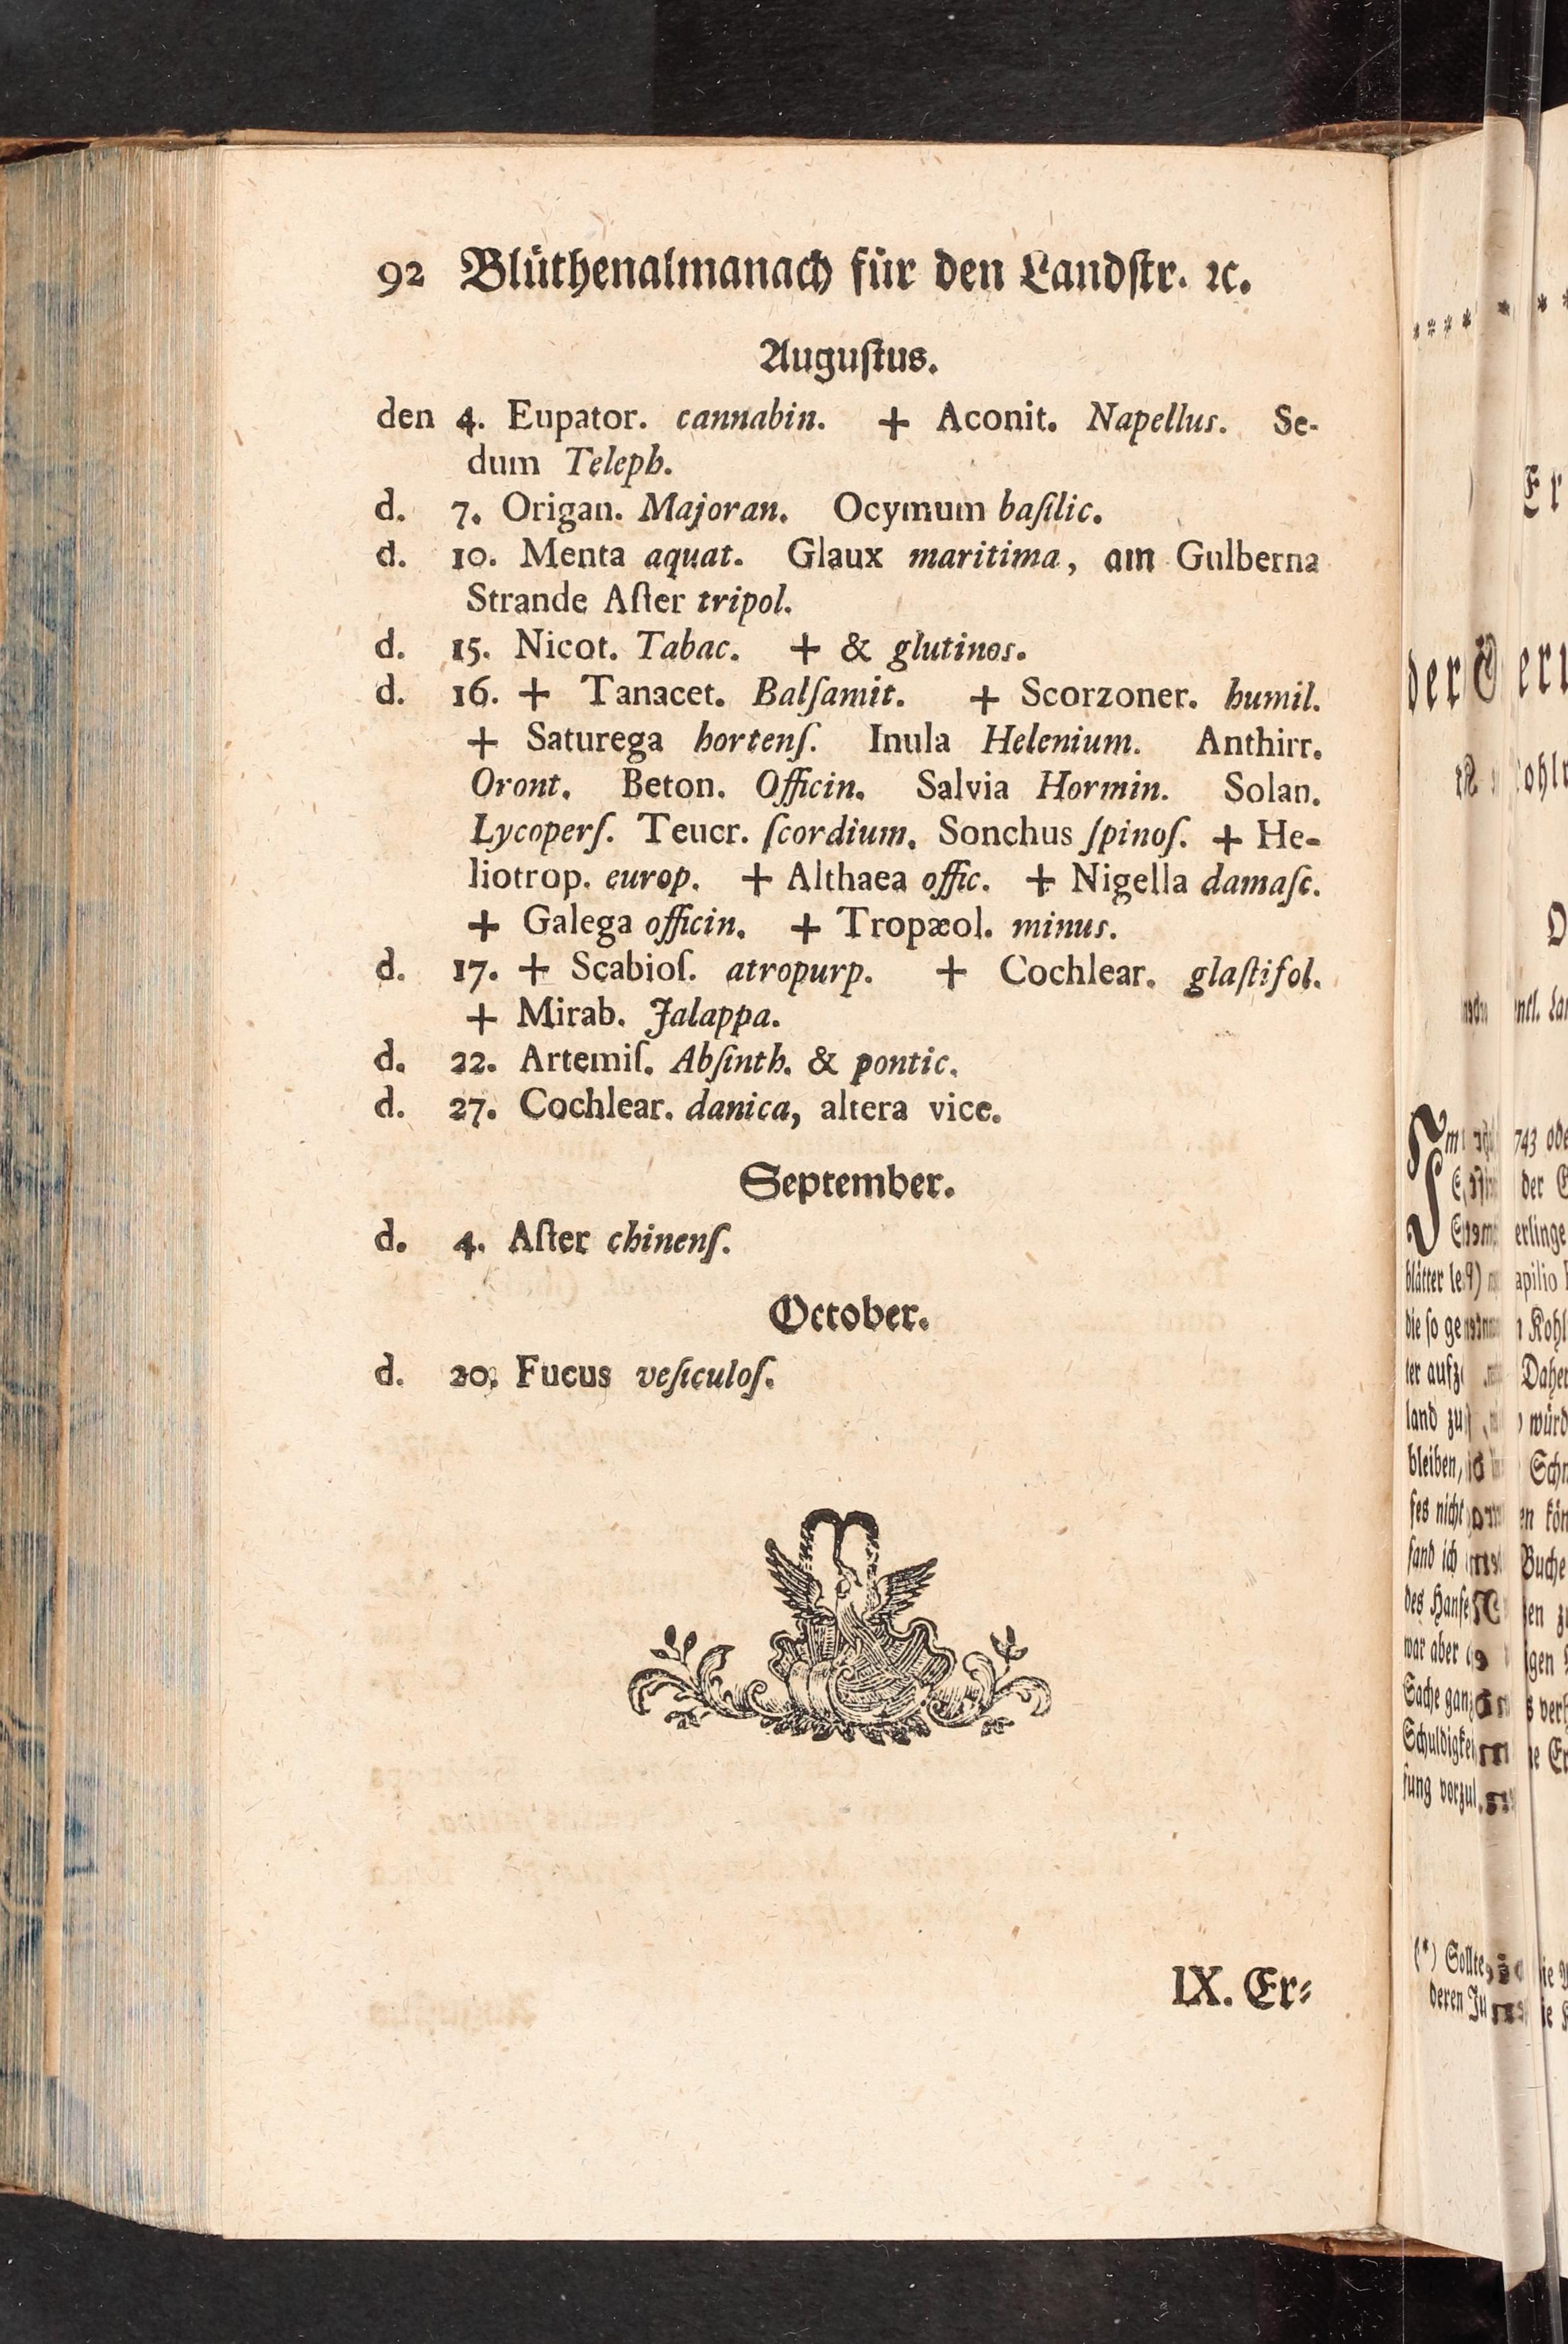 92 Blüthenalmanach für den Landſtr. ꝛc.
Auguſtus.
den 4. Eupator. cannabin. + Aconit. Napellus. Se-
dum Teleph.
d. 7. Origan. Majoran. Ocymum baſilic.
d. 10. Menta aquat. Glaux maritima, am Gulberna
Strande Aſter tripol.
d. 15. Nicot. Tabac. + & glutinos.
d. 16. + Tanacet. Balſamit. + Scorzoner. humil.
+ Saturega hortenſ. Inula Helenium. Anthirr.
Oront. Beton. Officin. Salvia Hormin. Solan.
Lycoperſ. Teucr. ſcordium. Sonchus ſpinoſ. + He-
liotrop. europ. + Althaea offic. + Nigella damaſc.
+ Galega officin. + Tropæol. minus.
d. 17. + Scabioſ. atropurp. + Cochlear. glaſtifol.
+ Mirab. Jalappa.
d. 22. Artemiſ. Abſinth. & pontic.
d. 27. Cochlear. danica, altera vice.
September.
d. 4. Aſter chinenſ.
October.
d. 20. Fucus veſiculoſ.
IX. Er-